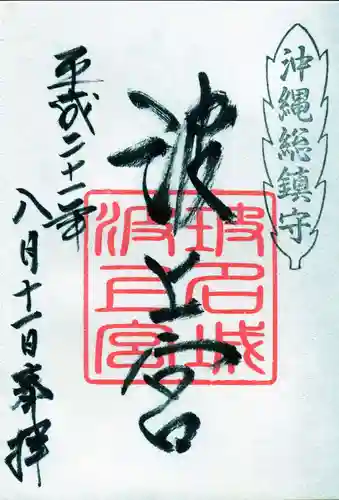 沖縄総鎮守
波上宮
坡名城
波上宮
平成二十一年
八月十一日奉拝